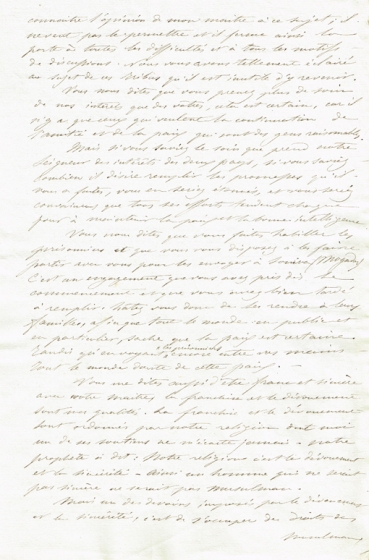 connaitre l'opinion de mon maitre à ce sujet, il
ne veut pas le permettre et il ferme ainsi la
porte à toutes les difficultés et à tous les motifs
de discussions. Nous vous avons tellement éclairé
au sujet de ces tribus qu'il est inutile d'y revenir.
Vous nous dites que vous prenez plus de soin
de nos intérêts que des vôtres, cela est certain, car il
n'y a que ceux qui veulent la continuation de
l'amitié et de la paix qui sont des gens raisonnables.
Mais si vous saviez le soin que prend notre
Seigneur des intérêts des deux pays, si vous saviez
combien il désire remplir les promesses qu'il
vous a faites, vous en seriez étonné, et vous seriez
convaincu que tous ses efforts tendent
pour à maintenir la paix et la bonne intelligence
Vous nous dites que vous faites habiller les
prisonniers et que vous vous disposez à les faire
porter avec vous pour les envoyer à
C'est un engagement que vous avez pris dès le
commencement et que vous avez bien tardé
à remplir. hatez vous donc de les rendre à leurs
familles, afin que tout le monde en public et
en particulier, sache que la paix est certaine
tandis qu'en voyant les prisonniers encore entre vos mains
tout le monde doute de cette paix. —
Vous me dites aussi: être franc et sincère
avec votre maitre, la franchise et le dévouement
sont nos qualités. La franchise et le dévouement
sont ordonnés par notre religion dont
un de ses soutiens ne jamais. — notre
prophète a dit: Notre religion c'est le dévouement
et la sincérité — Ainsi un homme qui ne serait
pas sincère ne serait pas Musulman.
Mais un des devoirs imposés par le dévouement
et la sincérité, c'est de s'occuper des droits des
Musulmans